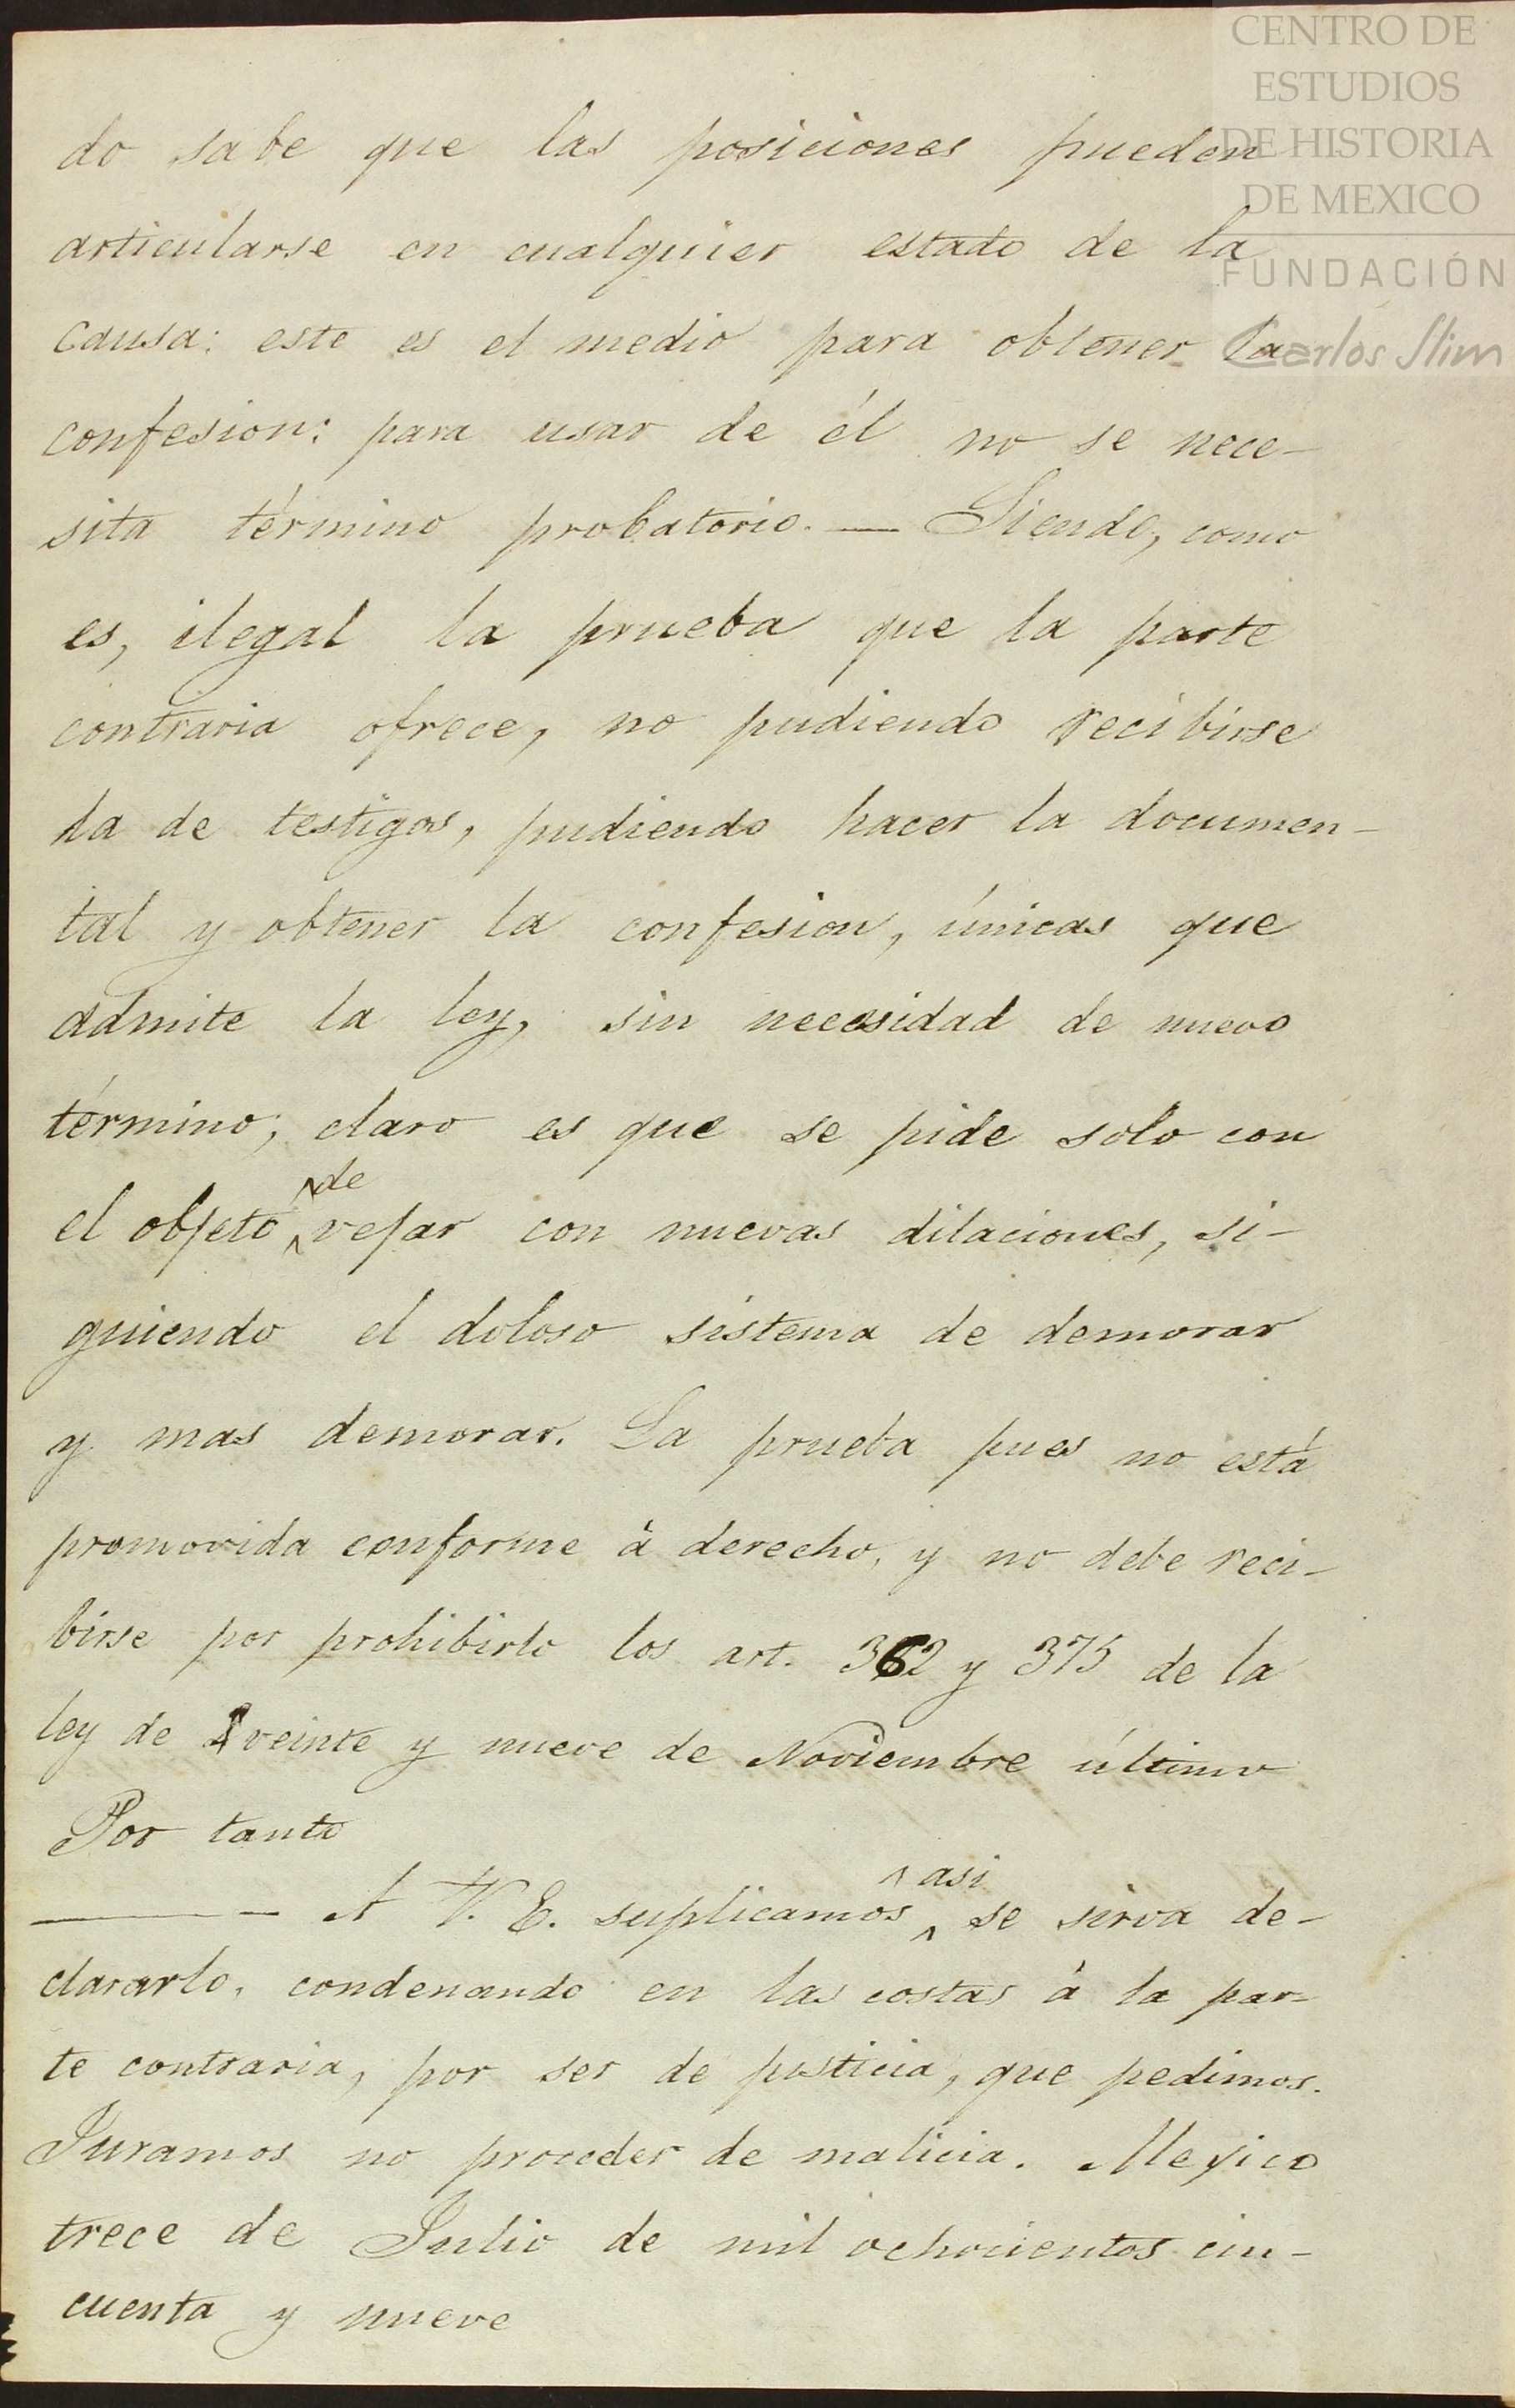 CENTRO DE
ESTUDIOS
DE HISTORIA
DE MEXICO
FUNDACIÓN
Carlos Slim
do sabe que las posiciones pueden
articularse en cualquier estado de la
causa: este es el medio para obtener la
confesion: para usar de él no se nece-
sita término probatorio. — Siendo, como
es, ilegal la prueba que la parte
contraria ofrece, no pudiendo recibirse
la de testigos, pudiendo hacer la documen-
tal y obtener la confesion, únicas que
admite la ley, sin necesidad de nuevo
término; claro es que se pide solo con
el objeto de vejar con nuevas dilaciones, si-
guiendo el doloso sistema de demorar
y mas demorar. La prueba pues no está
promovida conforme à derecho, y no debe reci-
birse por prohibirlo los art. 362 y 375 de la
ley de veinte y nueve de Noviembre último
Por tanto
——— A V. E. suplicamos asi se sirva de-
clararlo, condenando en las costas à la par-
te contraria, por ser de justicia, que pedimos.
Juramos no proceder de malicia. Mejico
trece de Julio de mil ochocientos cin-
cuenta y nueve